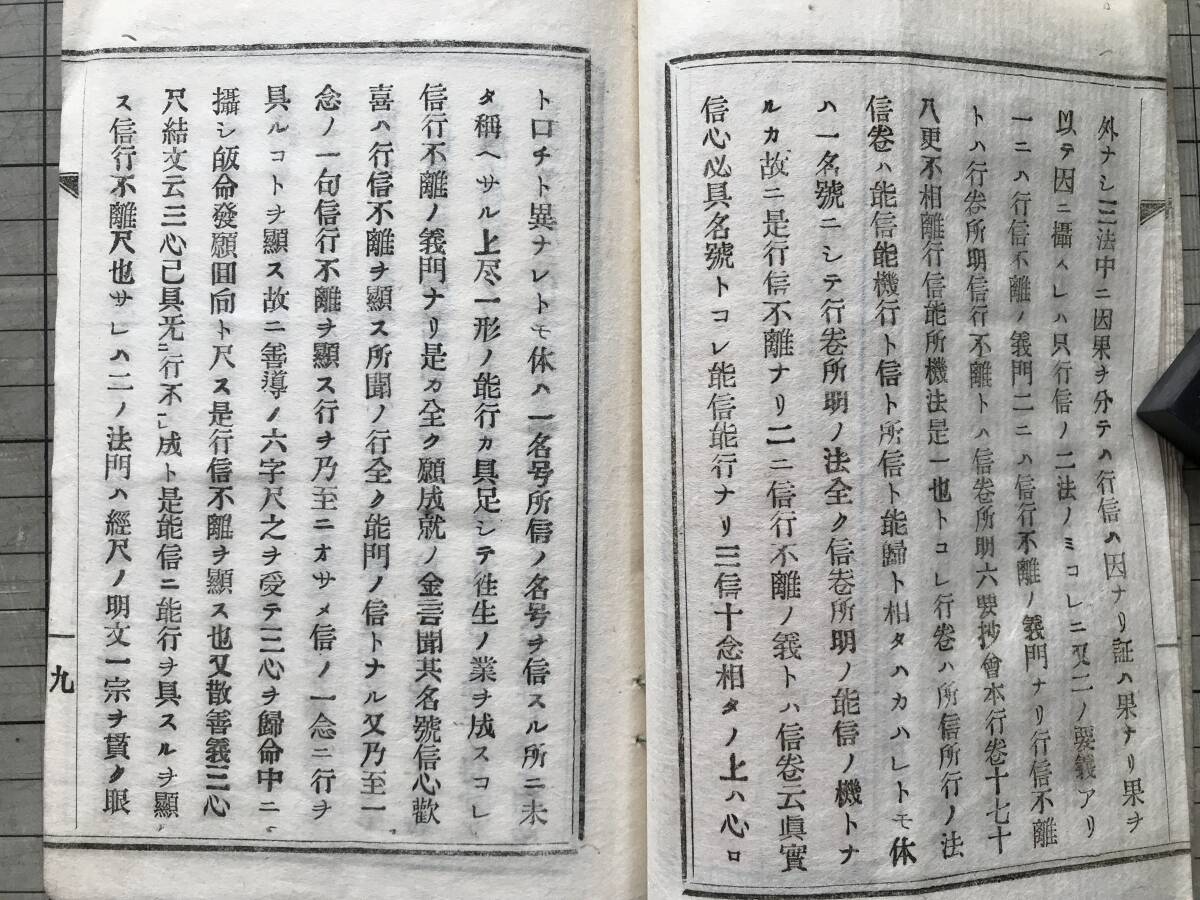 外ナシ三法中ニ因果ヲ分テハ行信ハ因ナリ証ハ果ナリ果ヲ
以テ因ニ攝スレハ只行信ノ二法ノミコレニ又二ノ要義アリ
一ニハ行信不離ノ義門二ニハ信行不離ノ義門ナリ行信不離
トハ行卷所明信行不離トハ信卷所明六要抄會本行卷十七十
八更不相離行信能所機法是一也トコレ行卷ハ所信所行ノ法
信卷ハ能信能機行ト信ト所信ト能歸ト相タハカハレトモ体
ハ一名號ニシテ行卷所明ノ法全ク信卷所明ノ能信ノ機トナ
ルカ故ニ是行信不離ナリ二ニ信行不離ノ義トハ信卷云眞實
信心必具名號トコレ能信能行ナリ三信十念相タノ上ハ心ロ
ト口チト異ナレトモ体ハ一名号所信ノ名号ヲ信スル所ニ未
タ稱ヘサル上尽一形ノ能行カ具足シテ往生ノ業ヲ成スコレ
信行不離ノ義門ナリ是カ全ク願成就ノ金言聞其名號信心歡
喜ハ行信不離ヲ顯ス所聞ノ行全ク能門ノ信トナル又乃至一
念ノ一句信行不離ヲ顯ス行ヲ乃至ニオサメ信ノ一念ニ行ヲ
具ルコトヲ顯ス故ニ善導ノ六字尺之ヲ受テ三心ヲ歸命中ニ
攝シ皈命發願回向ト尺ス是行信不離ヲ顯ス也又散善義三心
尺結文云三心已具无行不成ト是能信ニ能行ヲ具スルヲ顯
ス信行不離尺也サレハ二ノ法門ハ經尺ノ明文一宗ヲ貫ク眼
九